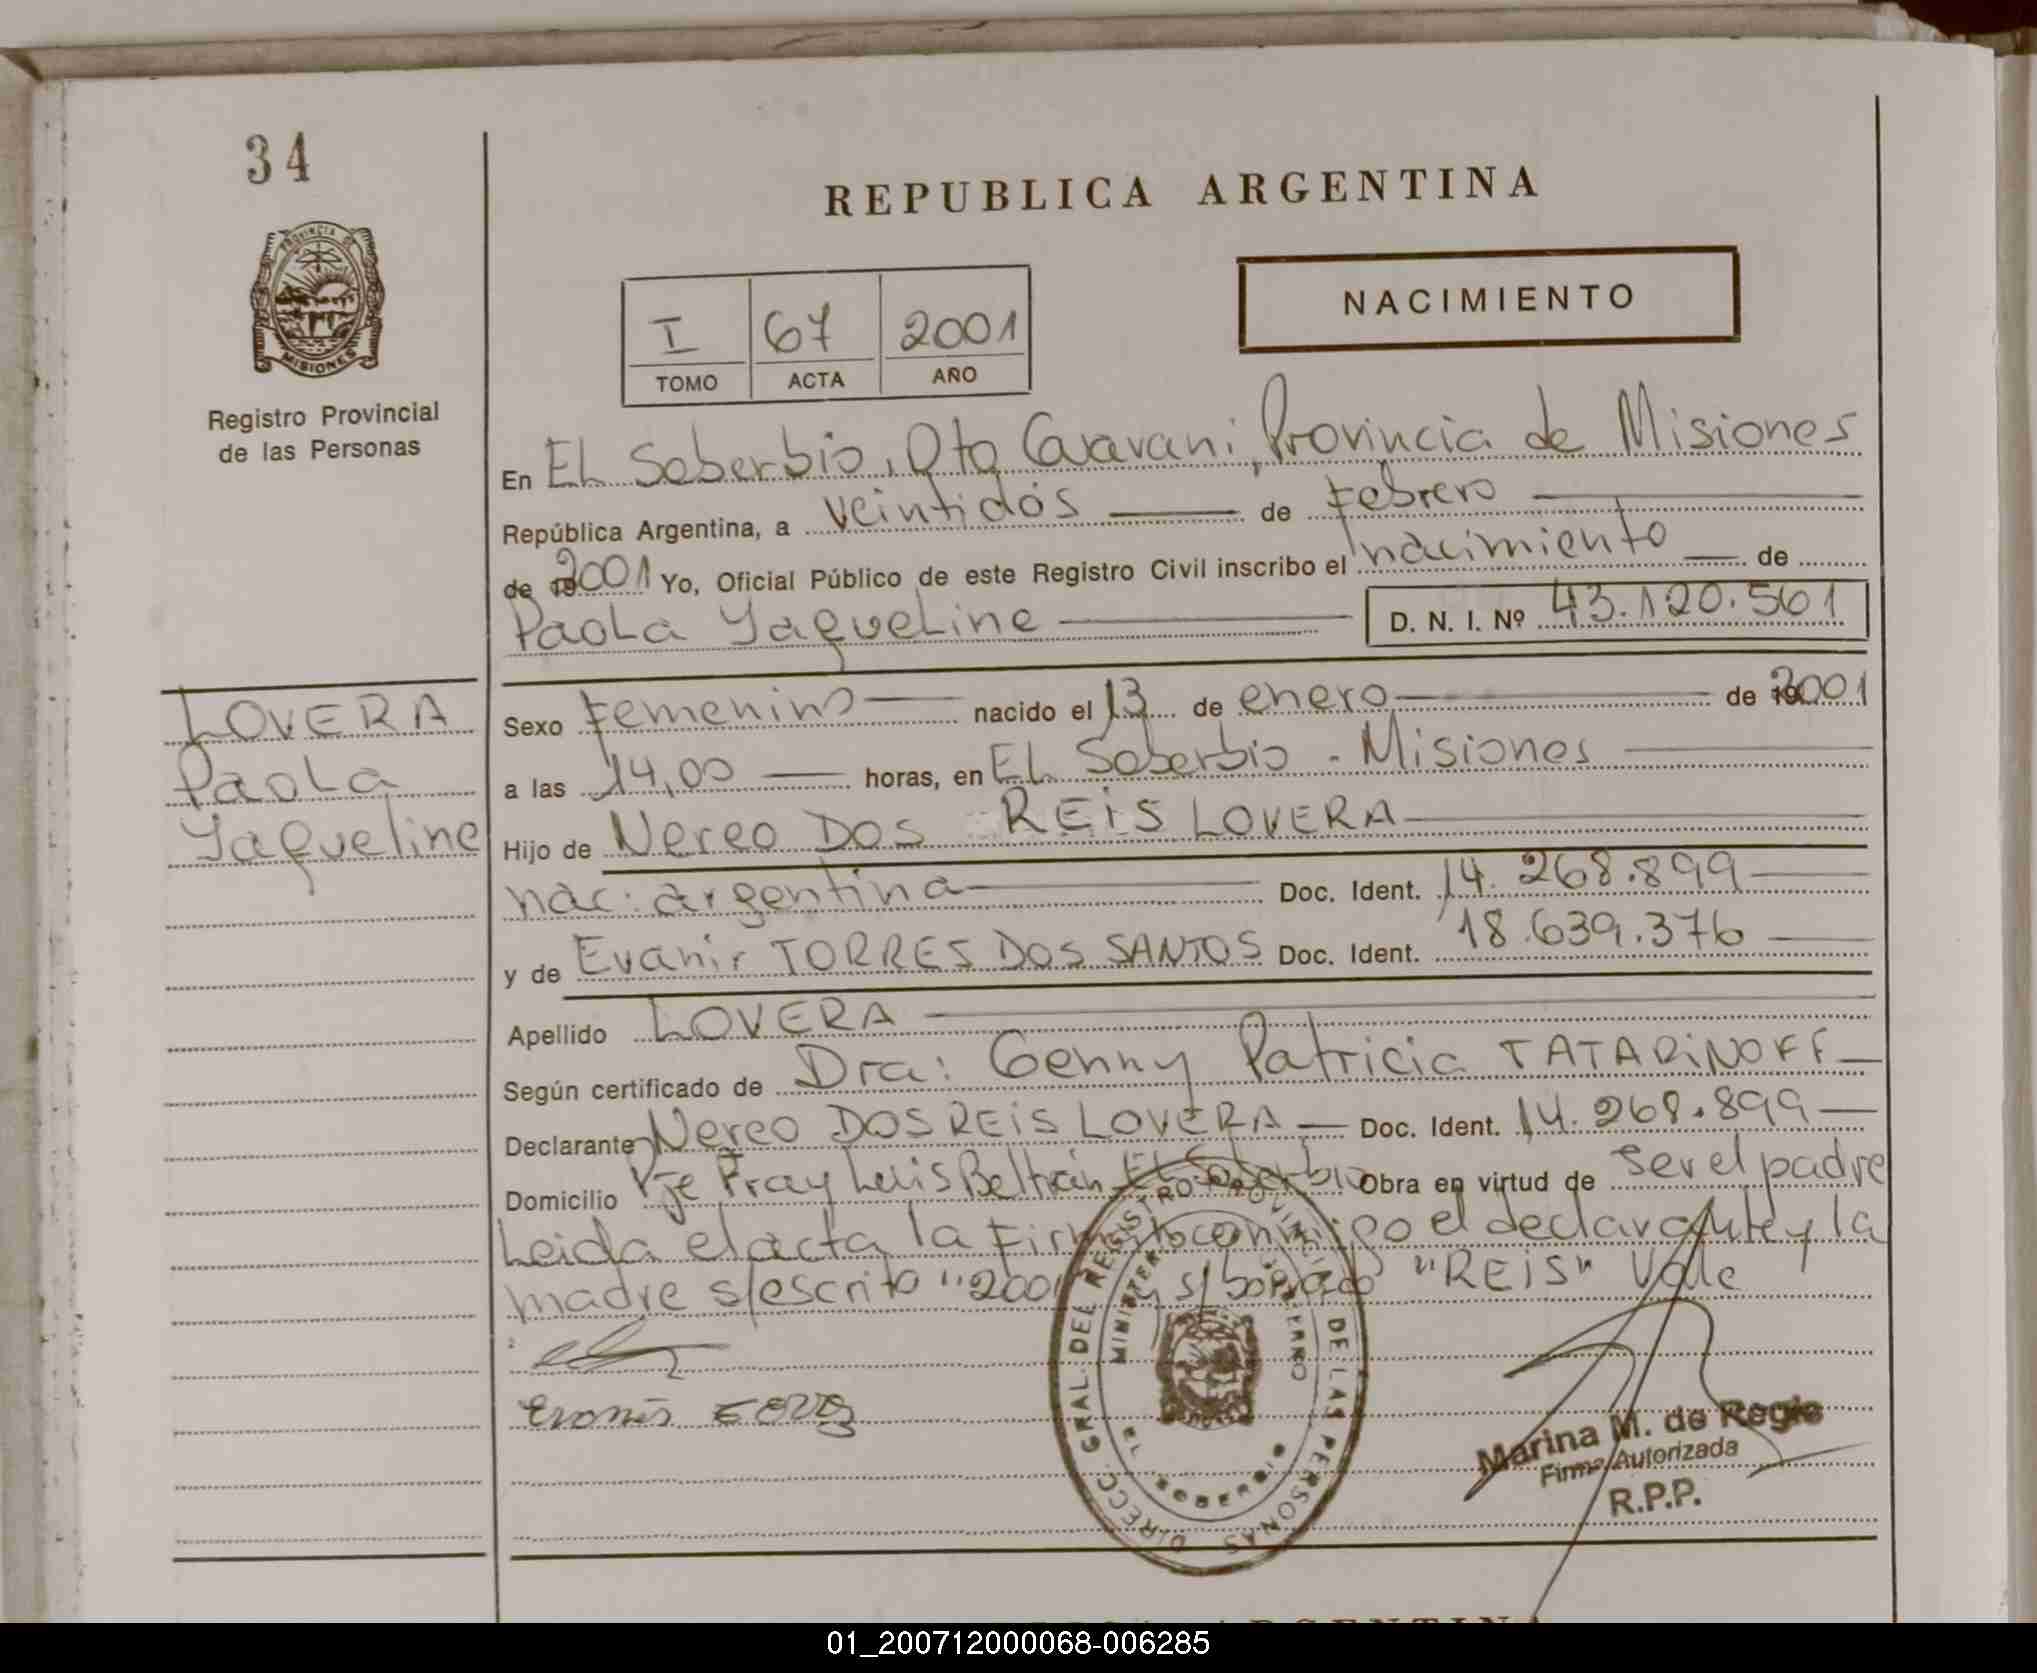 34
REPUBLICA ARGENTINA
PROVINCIA DE
MISIONES
Registro Provincial
de las Personas
NACIMIENTO
I 67 2001
TOMO ACTA AÑO
En EL Soberbio, Dto Guaraní, Provincia de Misiones
República Argentina, a veintidós de Febrero
de 2001 Yo, Oficial Público de este Registro Civil inscribo el nacimiento de
Paola Yaqueline D. N. I. Nº 43.120.561
LOVERA
Paola
Yaqueline
Sexo Femenino nacido el 13 de enero de 2001
a las 14,00 horas, en EL Soberbio - Misiones
Hijo de Nereo DOS REIS LOVERA
nac: argentina Doc. Ident. 14.268.899
y de Evanir TORRES DOS SANTOS Doc. Ident. 18.639.376
Apellido LOVERA
Según certificado de Dra: Genny Patricia TATARINOFF
Declarante Nereo DOS REIS LOVERA Doc. Ident. 14.268.899
Domicilio Pje Fray Luis Beltrán El Soberbio Obra en virtud de ser el padre
Leida el acta la Firman conmigo el declarante y la
madre s/escrito "2001" y s/borrado "REIS" Vale
DIRECC. GRAL. DEL REGISTRO PROVINCIAL DE LAS PERSONAS
EL SOBERBIO
Marina M. de Regis
Firma Autorizada
R.P.P.
01_200712000068-006285